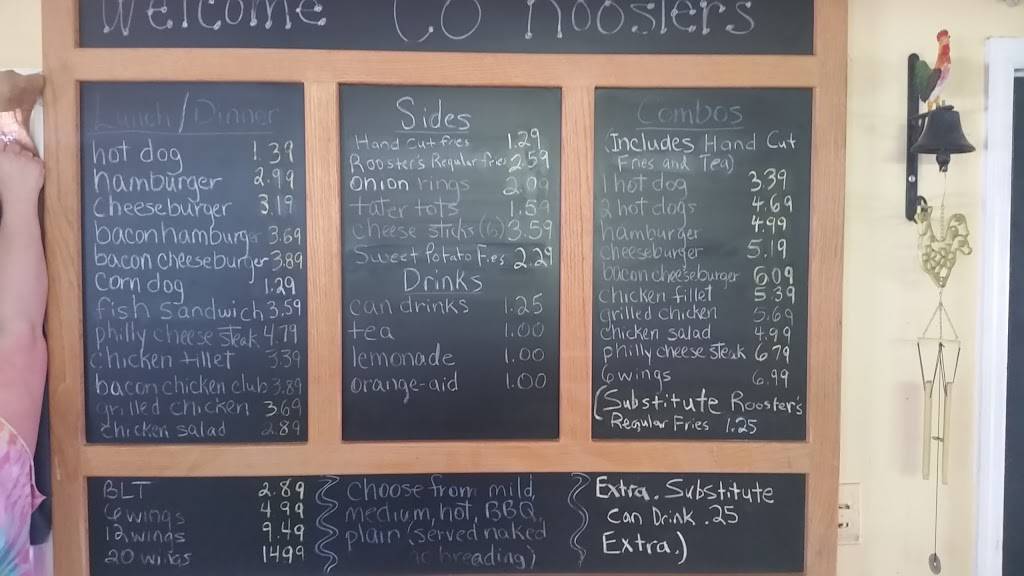 Welcome to Roosters
Lunch/Dinner
hot dog 1.39
hamburger 2.99
Cheeseburger 3.19
bacon hamburger 3.69
bacon cheeseburger 3.89
Corn dog 1.29
fish Sandwich 3.59
philly cheese steak 4.79
chicken fillet 3.39
bacon chicken club 3.89
grilled chicken 3.69
chicken salad 2.89
BLT 2.89
6 wings 4.99
12 wings 9.49
20 wings 14.99
Sides
Hand Cut fries 1.29
Rooster's Regular fries 2.59
Onion rings 2.09
tater tots 1.59
cheese sticks (6) 3.59
Sweet Potato Fries 2.29
Drinks
can drinks 1.25
tea 1.00
lemonade 1.00
orange-aid 1.00
choose from mild,
medium, hot, BBQ,
plain (Served naked
no breading)
Combos
(Includes Hand Cut
Fries and Tea)
1 hot dog 3.39
2 hot dogs 4.69
hamburger 4.99
cheeseburger 5.19
bacon cheeseburger 6.09
chicken fillet 5.39
grilled chicken 5.69
chicken salad 4.99
philly cheese steak 6.79
6 wings 6.99
(Substitute Rooster's
Regular Fries 1.25
Extra. Substitute
Can Drink .25
Extra.)